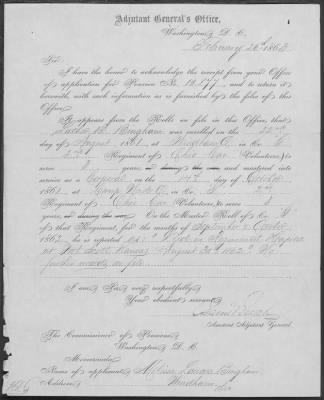 Adjutant General's Office,
Washington, D. C.
February 26th 1863
Sir:
I have the honor to acknowledge the receipt from your Office
of application for Pension No. 12,177, and to return it
herewith, with such information as is furnished by the files of this
Office.
It appears from the Rolls on file in this Office, that
Bingham was enrolled on the 22nd
day of August 1861, at Windham O. in Co. G
2nd Regiment of Ohio Cav Volunteers, to
serve 3 years, or during the war, and mustered into
service as a Corporal on the day of October
1861, at Camp Wade O. in Co. G 2nd
Regiment of Ohio Cav Volunteers, to serve 3
years, or during the war. On the Muster Roll of Co. G
of that Regiment, for the months of September & October
1862, he is reported as: "Died in Regimental Hospital
at Fort Scott Kansas August 30th 1862" No
further records on file
I am, Sir, very respectfully,
Your obedient servant,
Assistant Adjutant General.
The Commissioner of Pensions,
Washington, D. C.
Memoranda:
Name of applicant, Bingham
Address, Windham